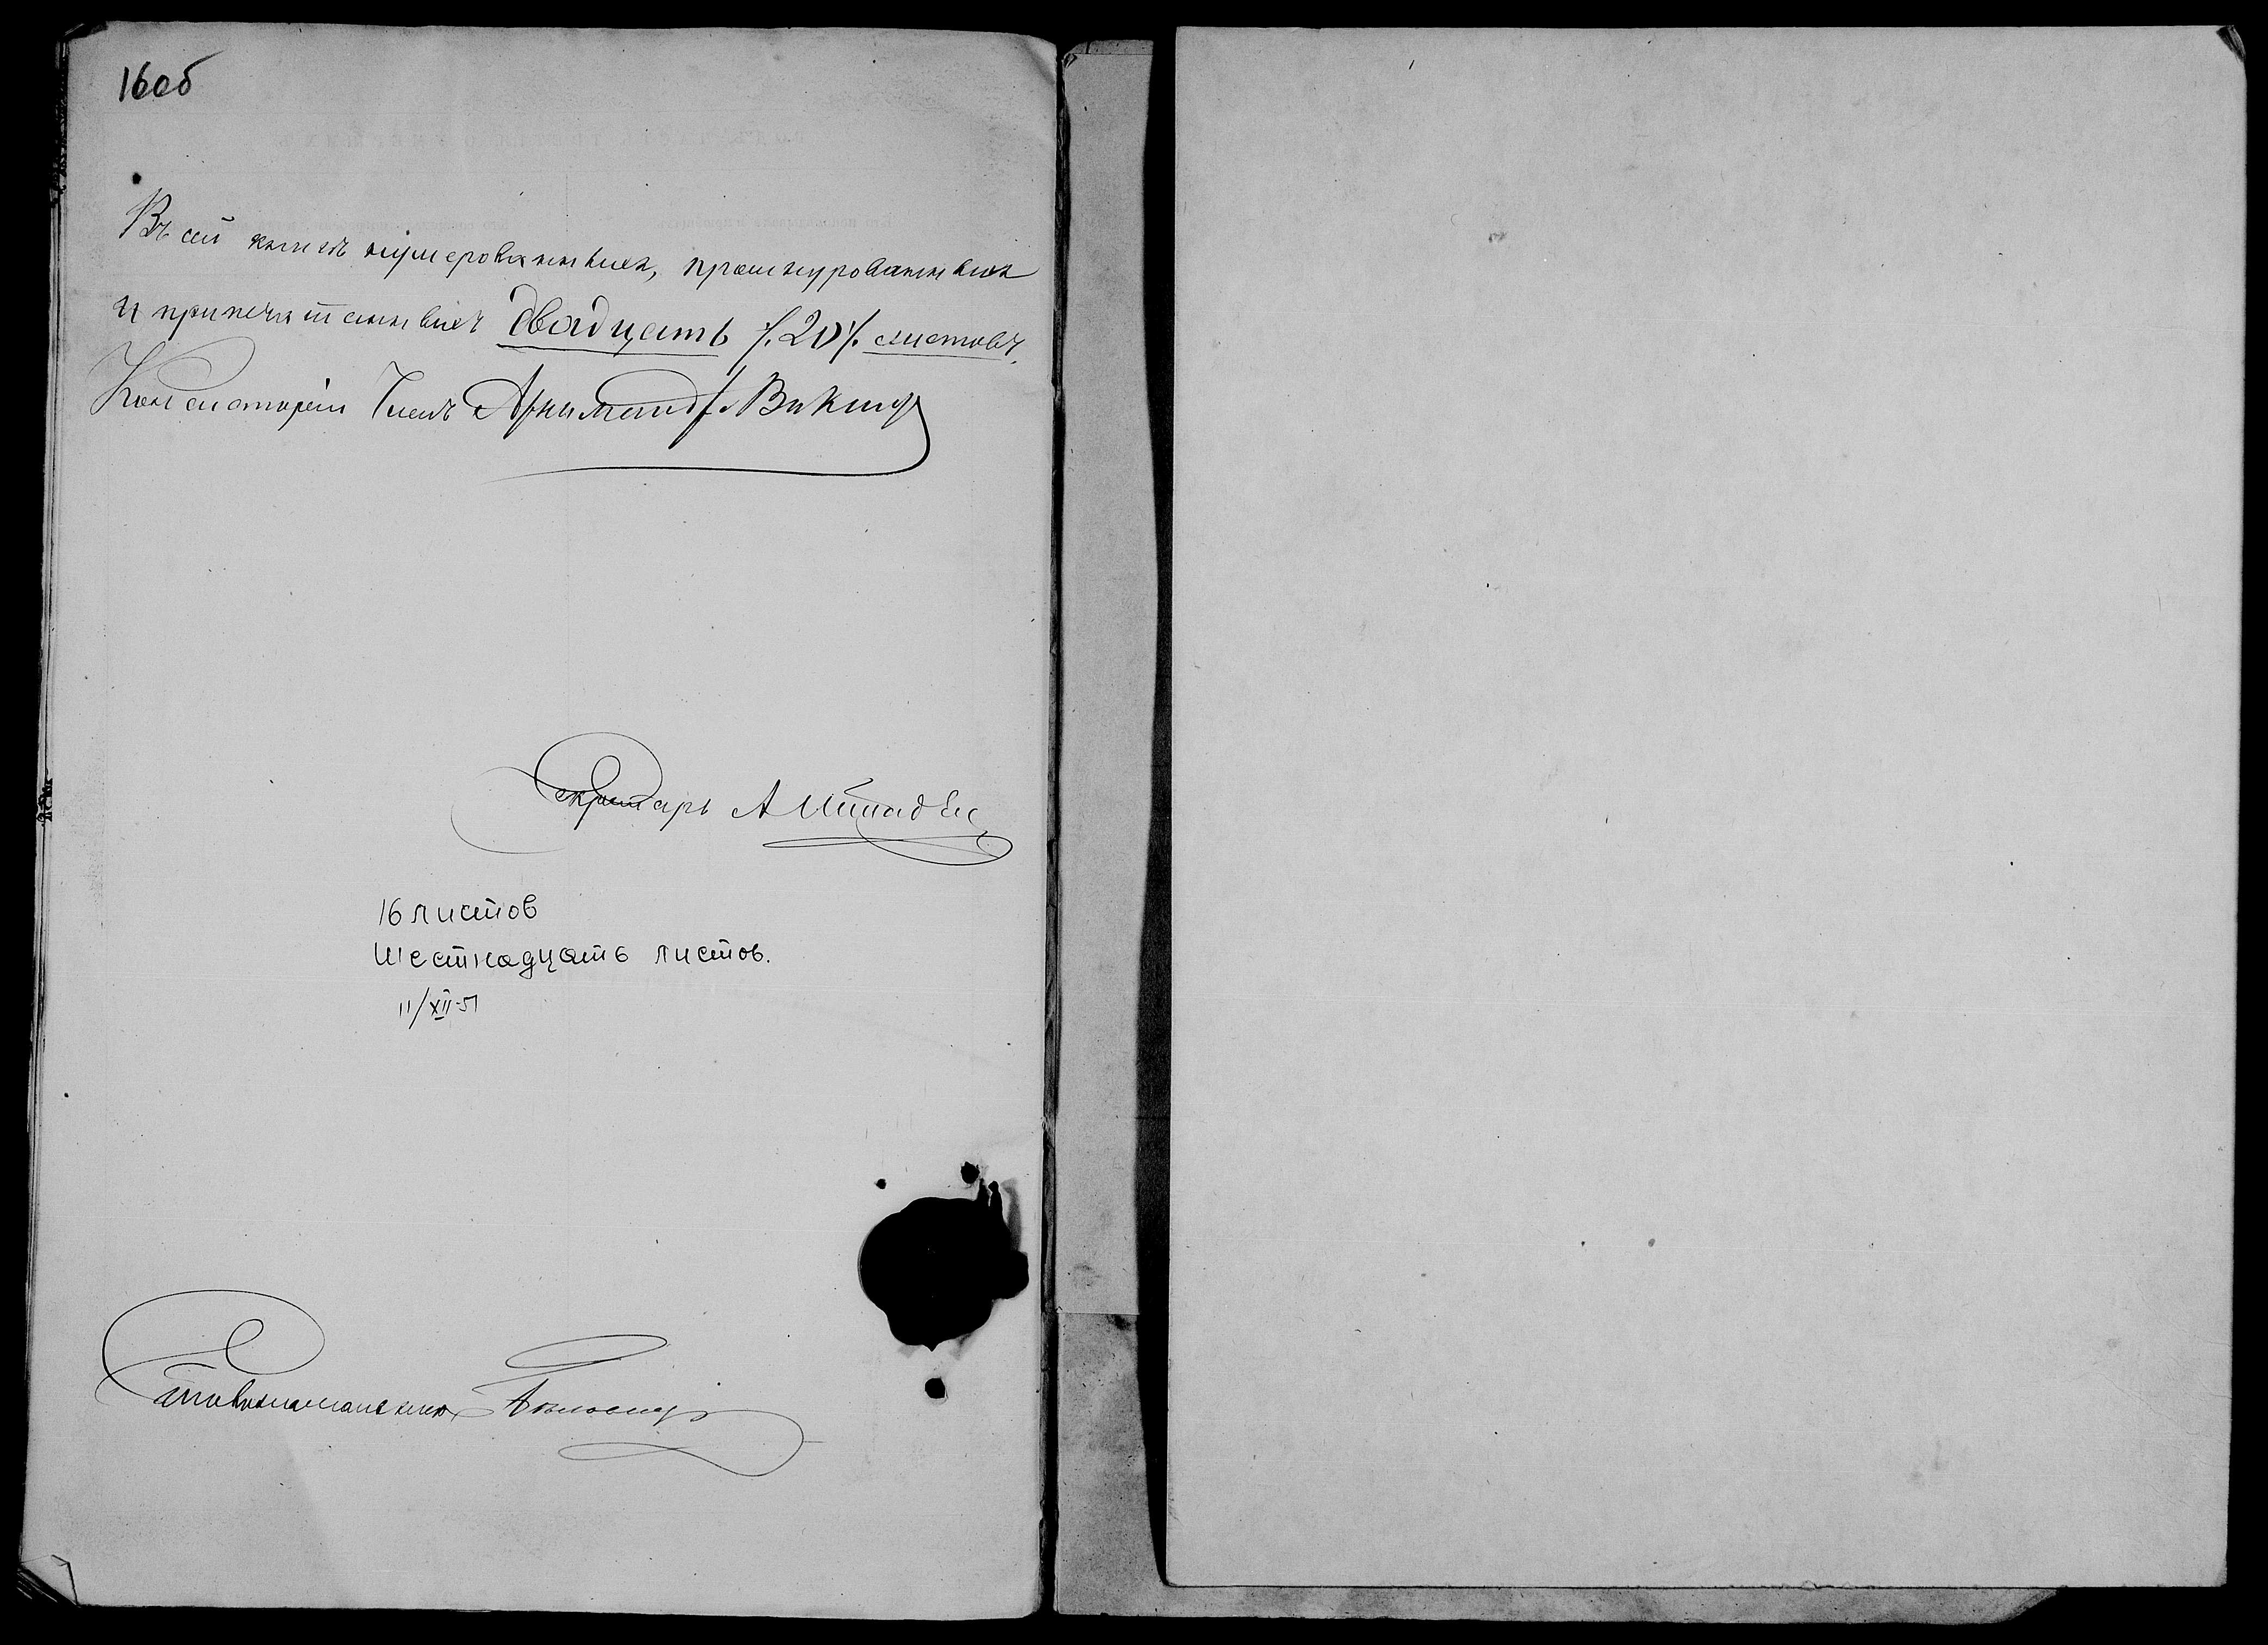 16об
Въ сей книгѣ нумерованныхъ, прошнурованныхъ
и припечатанныхъ двадцать /.20/. листовъ.
Консисторіи Членъ Архиманд.
Секретарь А
16 листов
Шестнадцать листов.
11/XII-51
Столоначальникъ